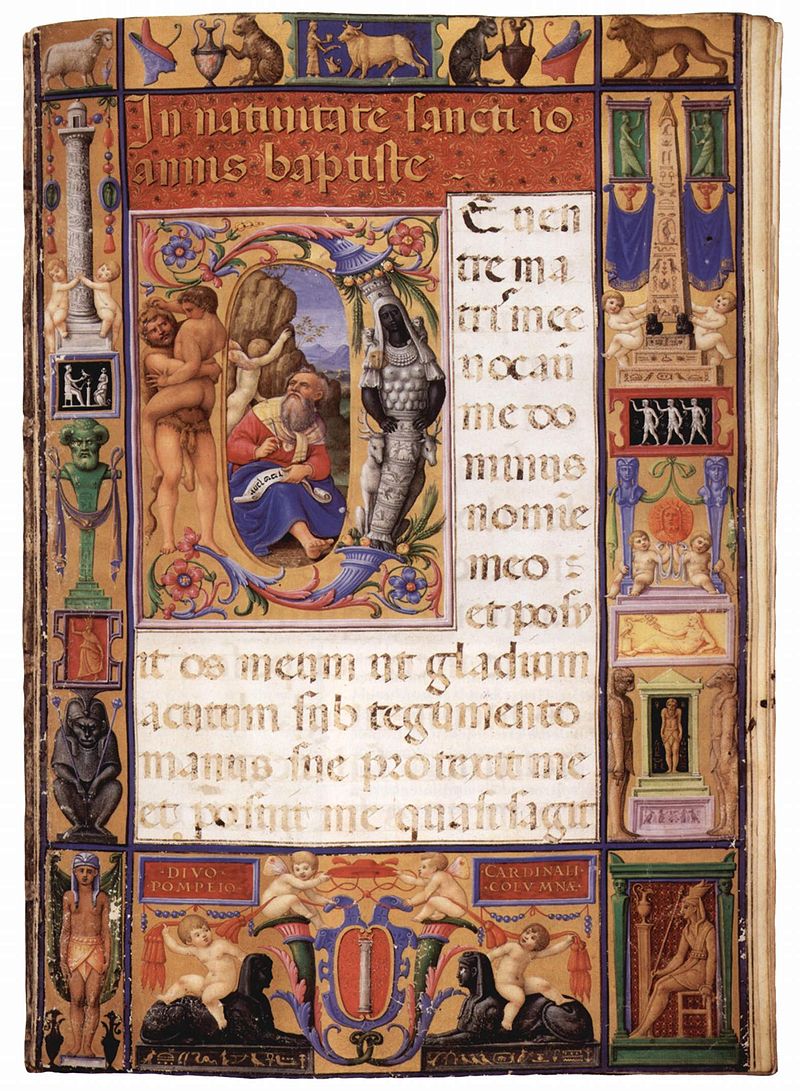 In natiuitate sancti io
annis baptiste
E uen
tre ma
tris mee
me do
minus
nomīe
meo
et posu
it os meum ut gladium
acutum sub tegumento
manus sue protexit me
et posuit me quasi sagit
·DIVO·
POMPEIO·
CARDINALI
·COLVMNÆ·